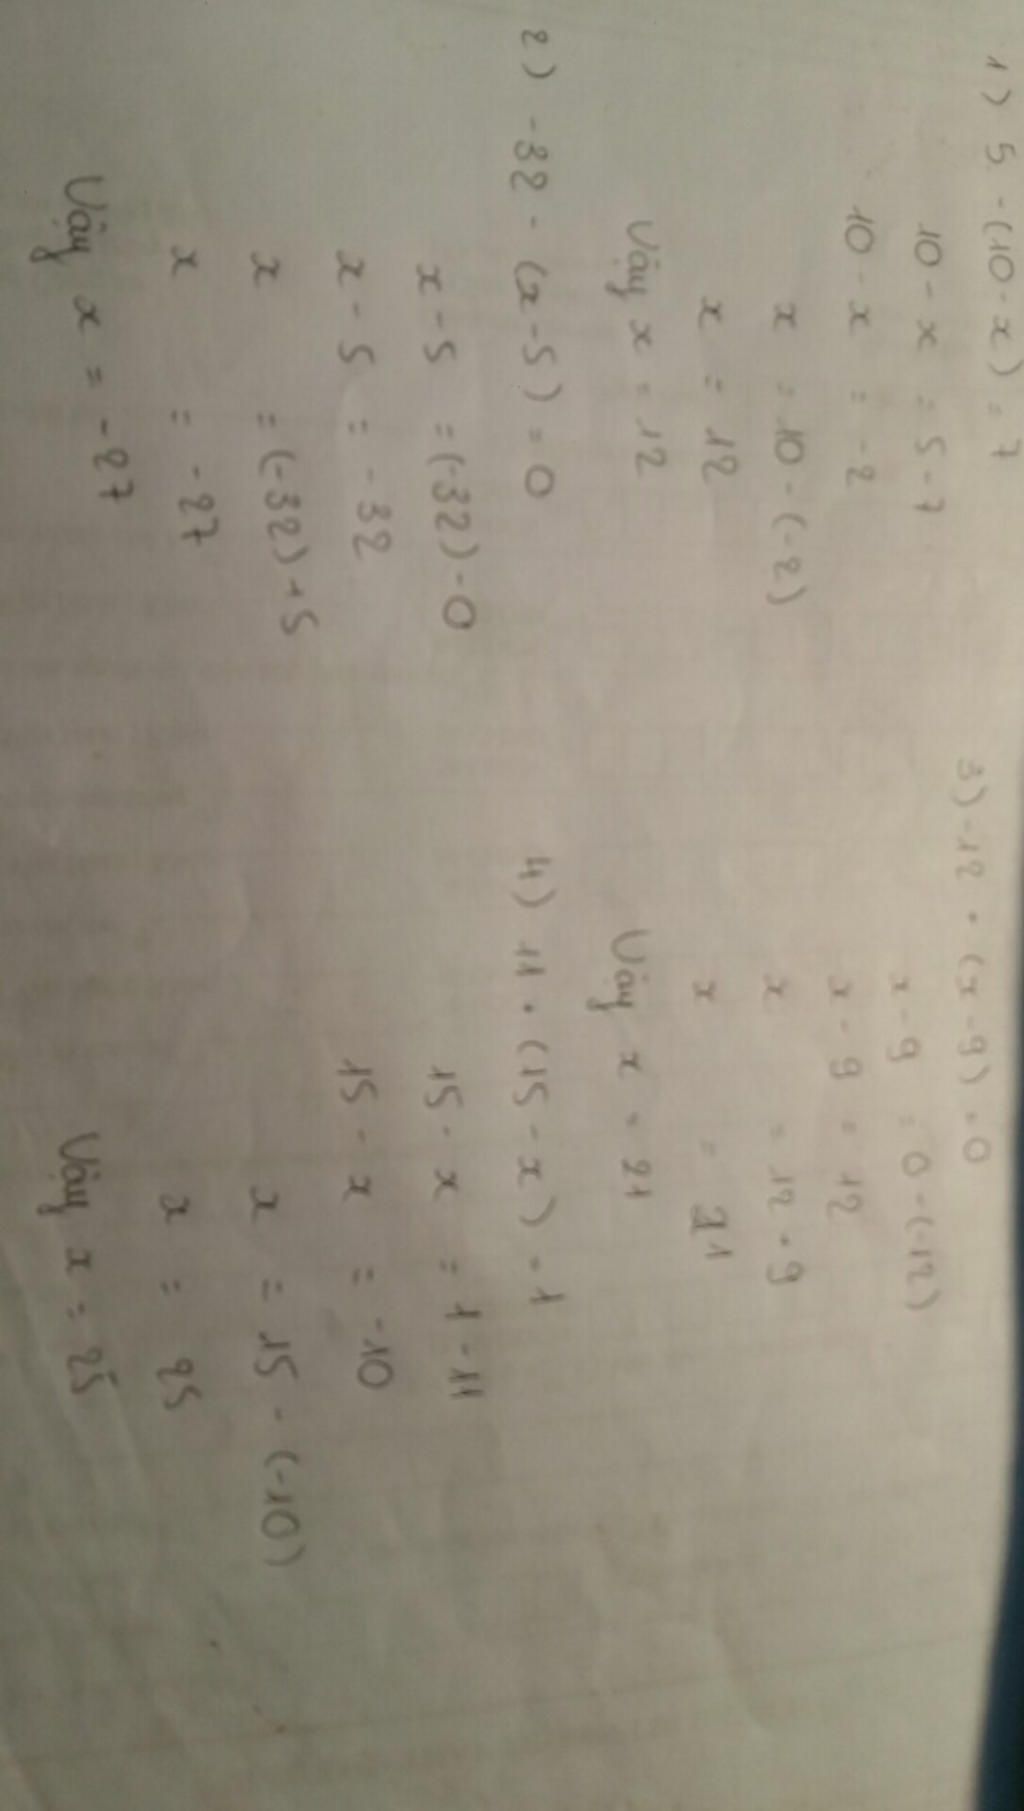 1) 5 - (10 - x) = 7
10 - x = 5 - 7
10 - x = -2
x = 10 - (-2)
x = 12
Vậy x = 12
2) -32 - (x - 5) = 0
x - 5 = (-32) - 0
x - 5 = -32
x = (-32) + 5
x = -27
Vậy x = -27
3) -12 + (x - 9) = 0
x - 9 = 0 - (-12)
x - 9 = 12
x = 12 + 9
x = 21
Vậy x = 21
4) 11 + (15 - x) = 1
15 - x = 1 - 11
15 - x = -10
x = 15 - (-10)
x = 25
Vậy x = 25